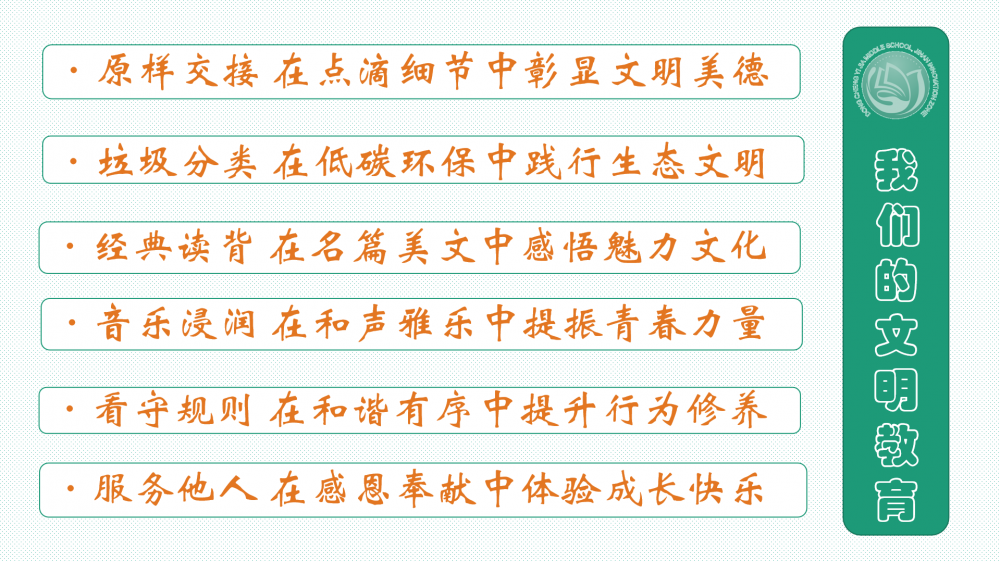 · 原样交接 在点滴细节中彰显文明美德
· 垃圾分类 在低碳环保中践行生态文明
· 经典读背 在名篇美文中感悟魅力文化
· 音乐浸润 在和声雅乐中提振青春力量
· 看守规则 在和谐有序中提升行为修养
· 服务他人 在感恩奉献中体验成长快乐
我们的文明教育